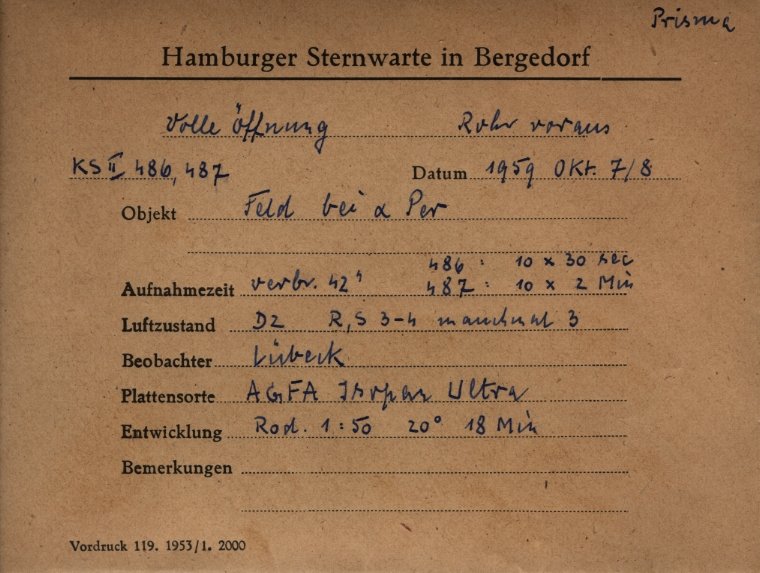 Prisma
Hamburger Sternwarte in Bergedorf
Volle Öffnung Rohr voraus
KS II 486, 487 Datum 1959 Okt. 7/8
Objekt Feld bei α Per
486: 10 x 30 sec
Aufnahmezeit verbr. 42" 487: 10 x 2 Min
Luftzustand D2 R, S 3-4 manchmal 3
Beobachter Lübeck
Plattensorte AGFA Isopan Ultra
Entwicklung Rod. 1:50 20° 18 Min
Bemerkungen
Vordruck 119. 1953/1. 2000